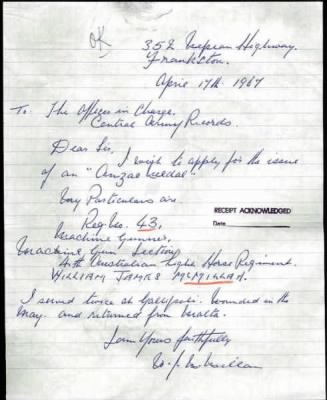 OK
352 Nepean Highway.
Frankston.
April 17th. 1967
To. The Officer in Charge.
Central Army Records.
Dear Sir,
I wish to apply for the issue
of an "Anzac Medal"
My Particulars are
Reg No. 43.
RECEIPT ACKNOWLEDGED
Date
Machine Gunner,
Machine Gun Section,
4th Australian Light Horse Regiment.
WILLIAM JAMES McMILLAN.
I served twice at Gallipoli. Wounded in the
May. and returned from Malta.
I am Yours faithfully
W. J. McMillan